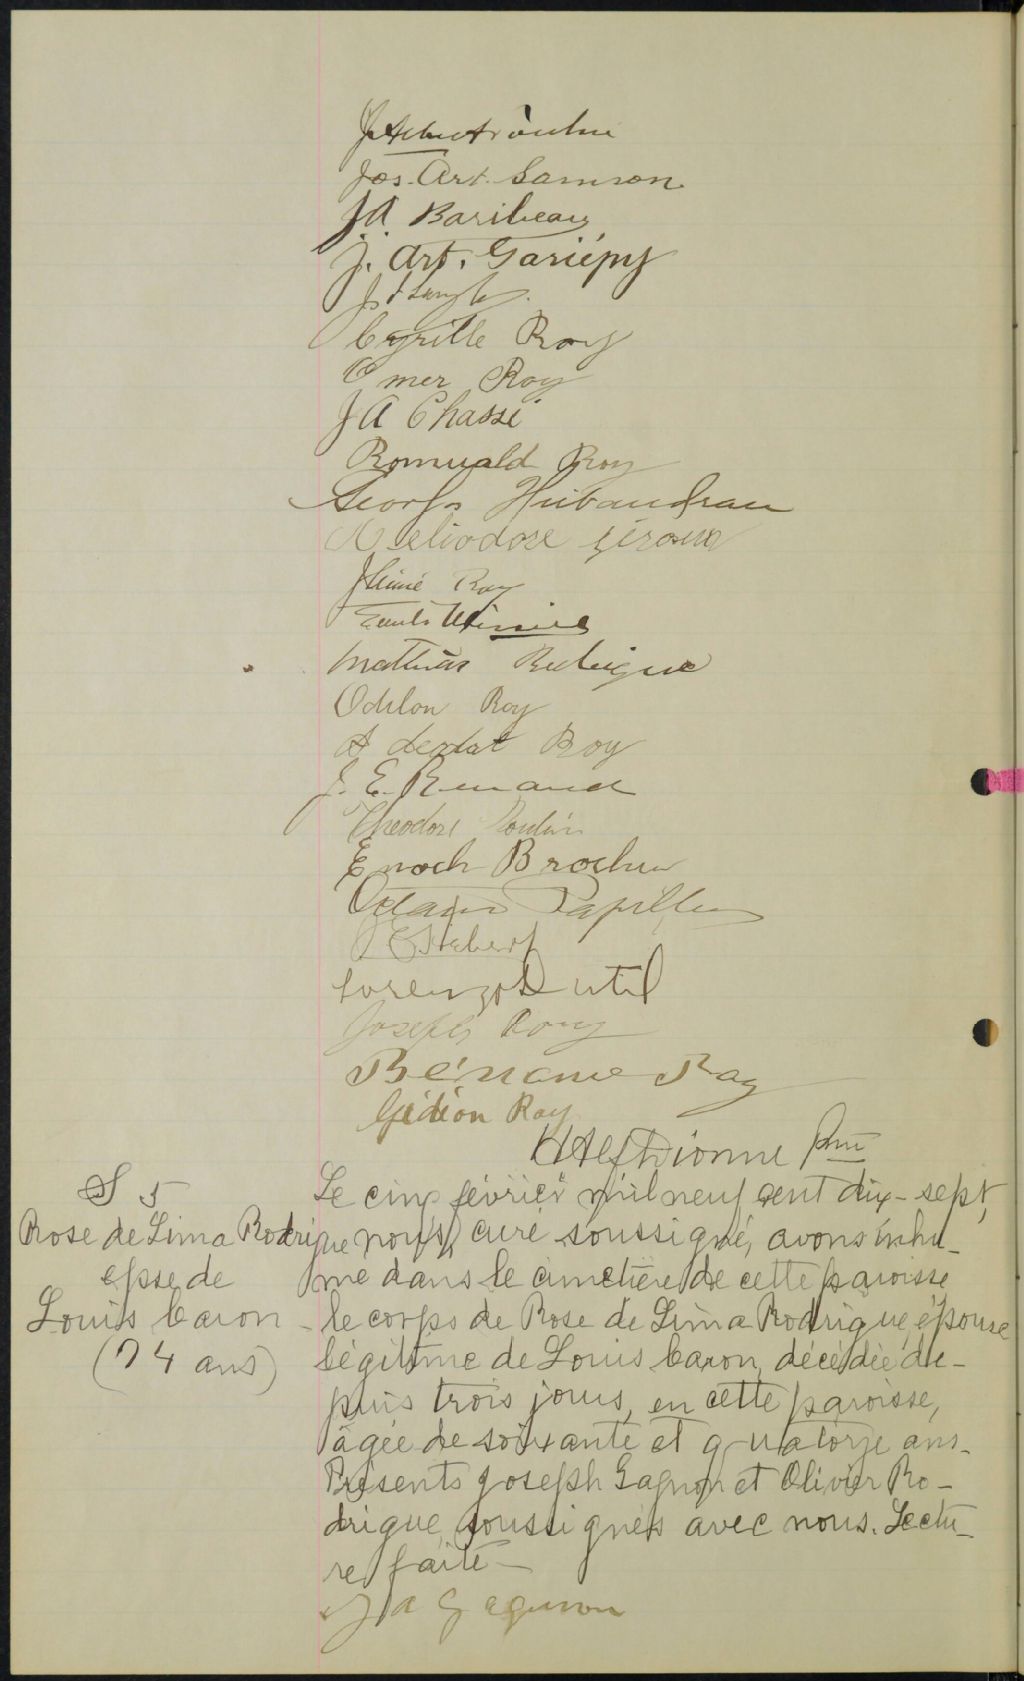 Jos. Art. Samson
J A Baribeau
J. Art. Gariépy
Cyrille Roy
Omer Roy
J A Chassé
Romuald Roy
Héliodore Giroux
Aimé Roy
Mathias Rodrigue
Odilon Roy
Adeodat Roy
J. E. Renaud
Theodore Poulin
Enoch Brochu
Octave Papillon
J E Hebert
Lorenzo Dutil
Joseph Roy
Bénonie Roy
Gédéon Roy
H Alf Dionne Ptre
S 5
Rose de Lima Rodrigue
epse de
Louis Caron
(74 ans)
Le cinq février mil neuf cent dix-sept,
nous, curé soussigné, avons inhu-
mé dans le cimetière de cette paroisse
le corps de Rose de Lima Rodrigue, épouse
légitime de Louis Caron, décédée de-
puis trois jours, en cette paroisse,
âgée de soixante et quatorze ans.
Présents Joseph Gagnon et Olivier Ro-
drigue, soussignés avec nous. Lectu-
re faite –
J A Gagnon